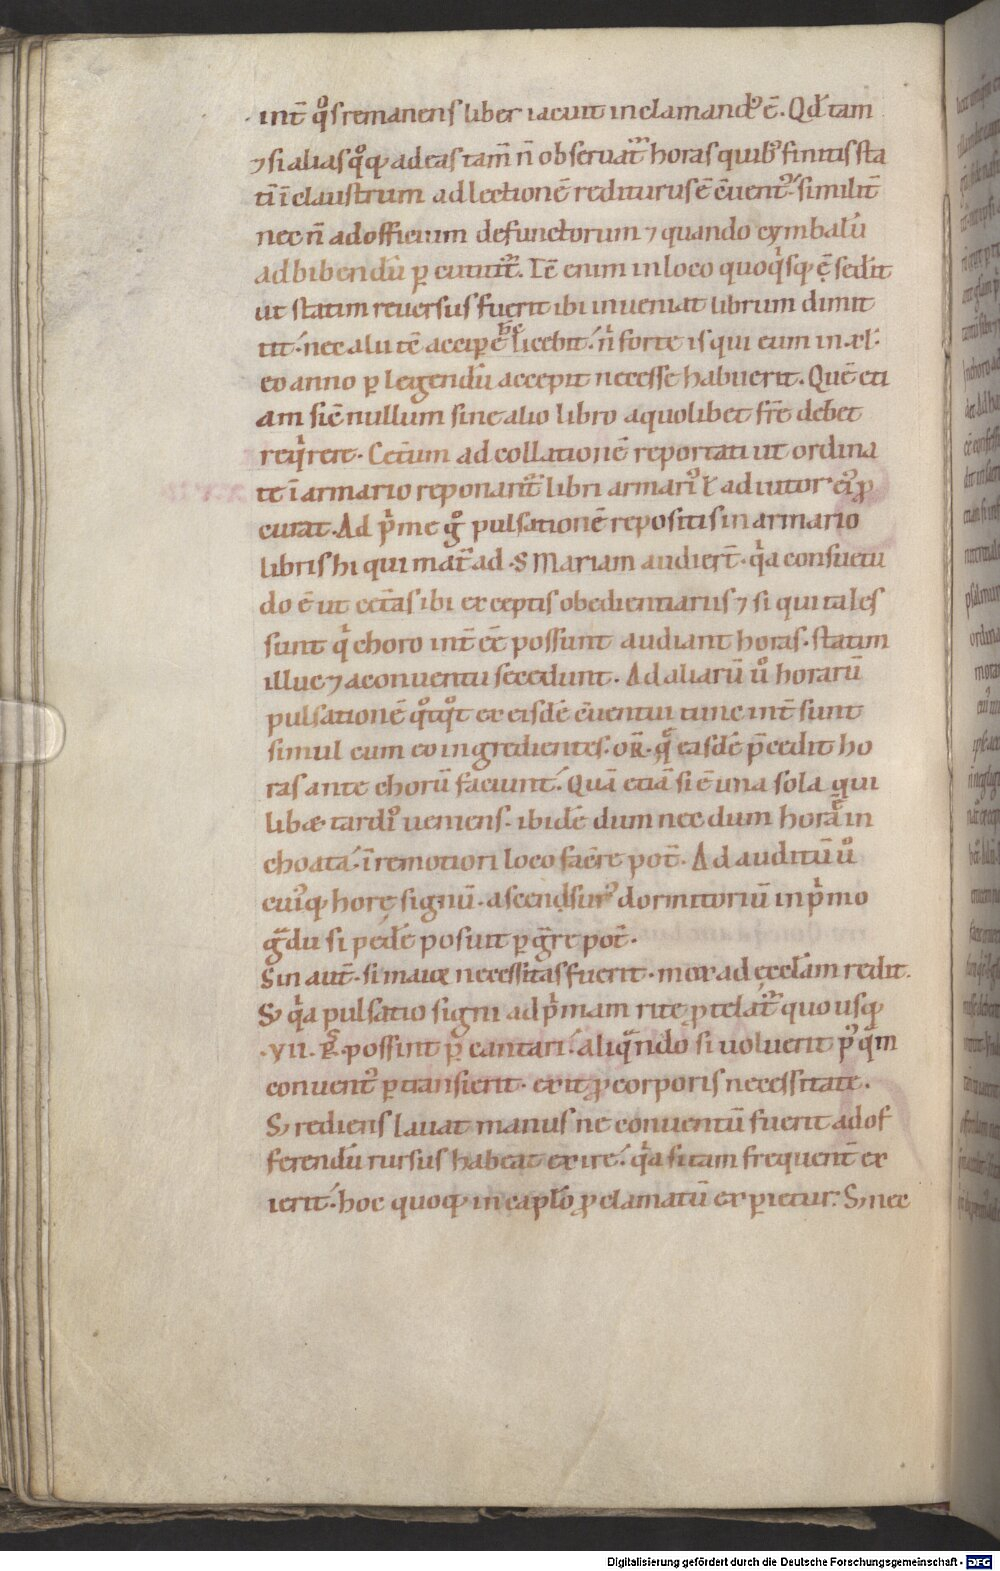 int̄ q̊s remanens liber iacuit inclamand᷒ ē. Qd̄ tam
⁊ si alias q̊q; ad eas tam̄ n̄ obseruat᷑ horas quib᷒ finitis sta
tī ī claustrum ad lectionē rediturus ē c̄uent᷒. similit̄
nec n̄ ad officium defunctorum ⁊ quando cymbalū
ad bibendū ꝑcutit᷑. Iē enim in loco quoq̇sq; ę̄ sedit
ut statim reuersus fuerit ibi inueniat librum dimit
tit. nec alii tē acciꝑe licebit. n̄ forte is qui eum in xl.
eo anno ꝑ legendū accepit necesse habuerit. Quē eti
am sic̄ nullum sine alio libro a quolibet fr̄e debet
req̇rere. Cet̄um ad collationē reportati ut ordina
te ī armario reponant᷑ libri armari᷒ ł adiutor ei᷒ ꝓ
curat. Ad ṗme g̊ pulsationē repositis in armario
libris hi qui mat̄ ad .S Mariam audier̄t. q̇a consuetu
do ē ut cet̄as ibi exceptis obedientiariis ⁊ si qui tales
sunt q̇ choro int̄ee possunt audiant horas. statim
illuc ⁊ a conuentu secedunt. Ad aliarū ů horarū
pulsationē q̊tq̊t ex eisdē c̄uentui tunc int̄sunt
simul cum eo ingredientes. or̄. q̨ easdē p̄cedit ho
ras ante chorū faciunt. Quā etiā si ē una sola qui
libæ tardi᷒ ueniens. ibidē dum nec dum hora ē in
choata. ī remotiori loco facere pot̄. Ad auditū ů
cui᷒q; horę signū. ascensur᷒ dormitoriū in ṗmo
gͣdu si pedē posuit ꝑgͣre pot̄.
Sin aut̄. si maior necessitas fuerit. mox ad ęccłam redit.
S; q̇a pulsatio signi ad ṗmam rite ꝓtelat᷑ quousq;
.VII. ps̄. possint ꝑcantari. aliqͣndo si uoluerit p᷒qͣm
conuent᷒ ꝑtransierit. exit ꝓ corporis necessitate.
S; rediens lauat manus ne conuentū fuerit ad of
ferendū rursus habeat exire. q̇a si tam frequent̄ ex
ierit. hoc quoq; in capło ꝓclamatū experietur. S; nec
Digitalisierung gefördert durch die Deutsche Forschungsgemeinschaft - DFG